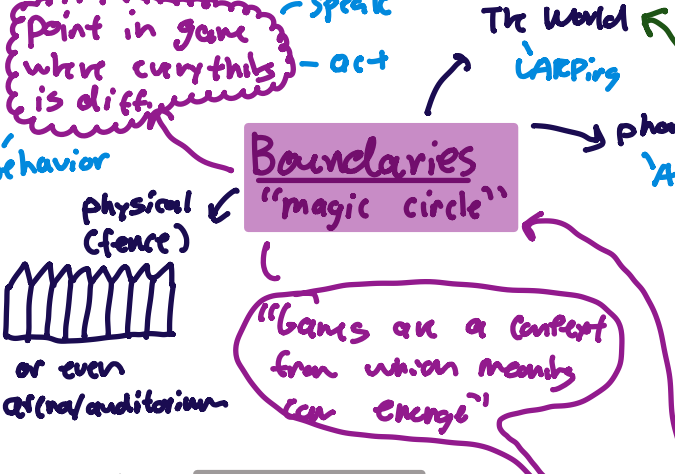 speak
point in game
where everything
is diff.
act
behavior
The World
LARPing
pho
A
Boundaries
"magic circle"
physical
(fence)
or even
arena/auditorium
"Games are a context
from which meaning
can emerge"